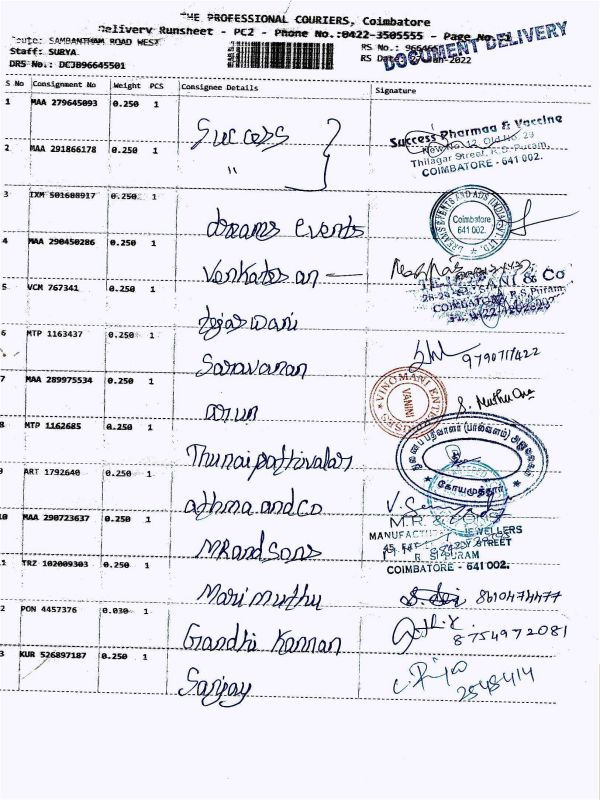 THE PROFESSIONAL COURIERS, Coimbatore
Delivery Runsheet - PC2 - Phone No.:0422-3505555 - Page No.
DOCUMENT DELIVERY
Route: SAMBANTHAM ROAD WEST
Staff: SURYA
DRS No.: DCJB96645501
RS No.:
RS Date 27-Jan-2022
S No Consignment No Weight PCS Consignee Details Signature
1 MAA 279645093 0.250 1 Success
Success Pharmaa & Vaccine
New No. 12, Old No. 29
Thilagar Street, R.S. Puram,
COIMBATORE - 641 002.
2 MAA 291866178 0.250 1 "
3 IXM 501688917 0.250 1 dreams events
DREAMS EVENTS AND ADS
Coimbatore
641 002.
4 MAA 290450286 0.250 1 Venkatesan
5 VCM 767341 0.250 1 tejaswani
& Co
R.S. Puram
6 MTP 1163437 0.250 1 Saravanan
9790717422
7 MAA 289975534 0.250 1 arun
VINOMANI
VANNI
8 MTP 1162685 0.250 1 Thunaipathivalar
கோயமுத்தூர்
9 ART 1792640 0.250 1 athma and co
10 MAA 290723637 0.250 1 MR and Sons
M.R. & SONS
MANUFACTURING JEWELLERS
STREET
R S PURAM
COIMBATORE - 641 002.
11 TRZ 102009303 0.250 1 Marimuthu
8610474477
12 PON 4457376 0.030 1 Gandhi Kannan
8754972081
13 KUR 526897187 0.250 1 Sanjay
2545414